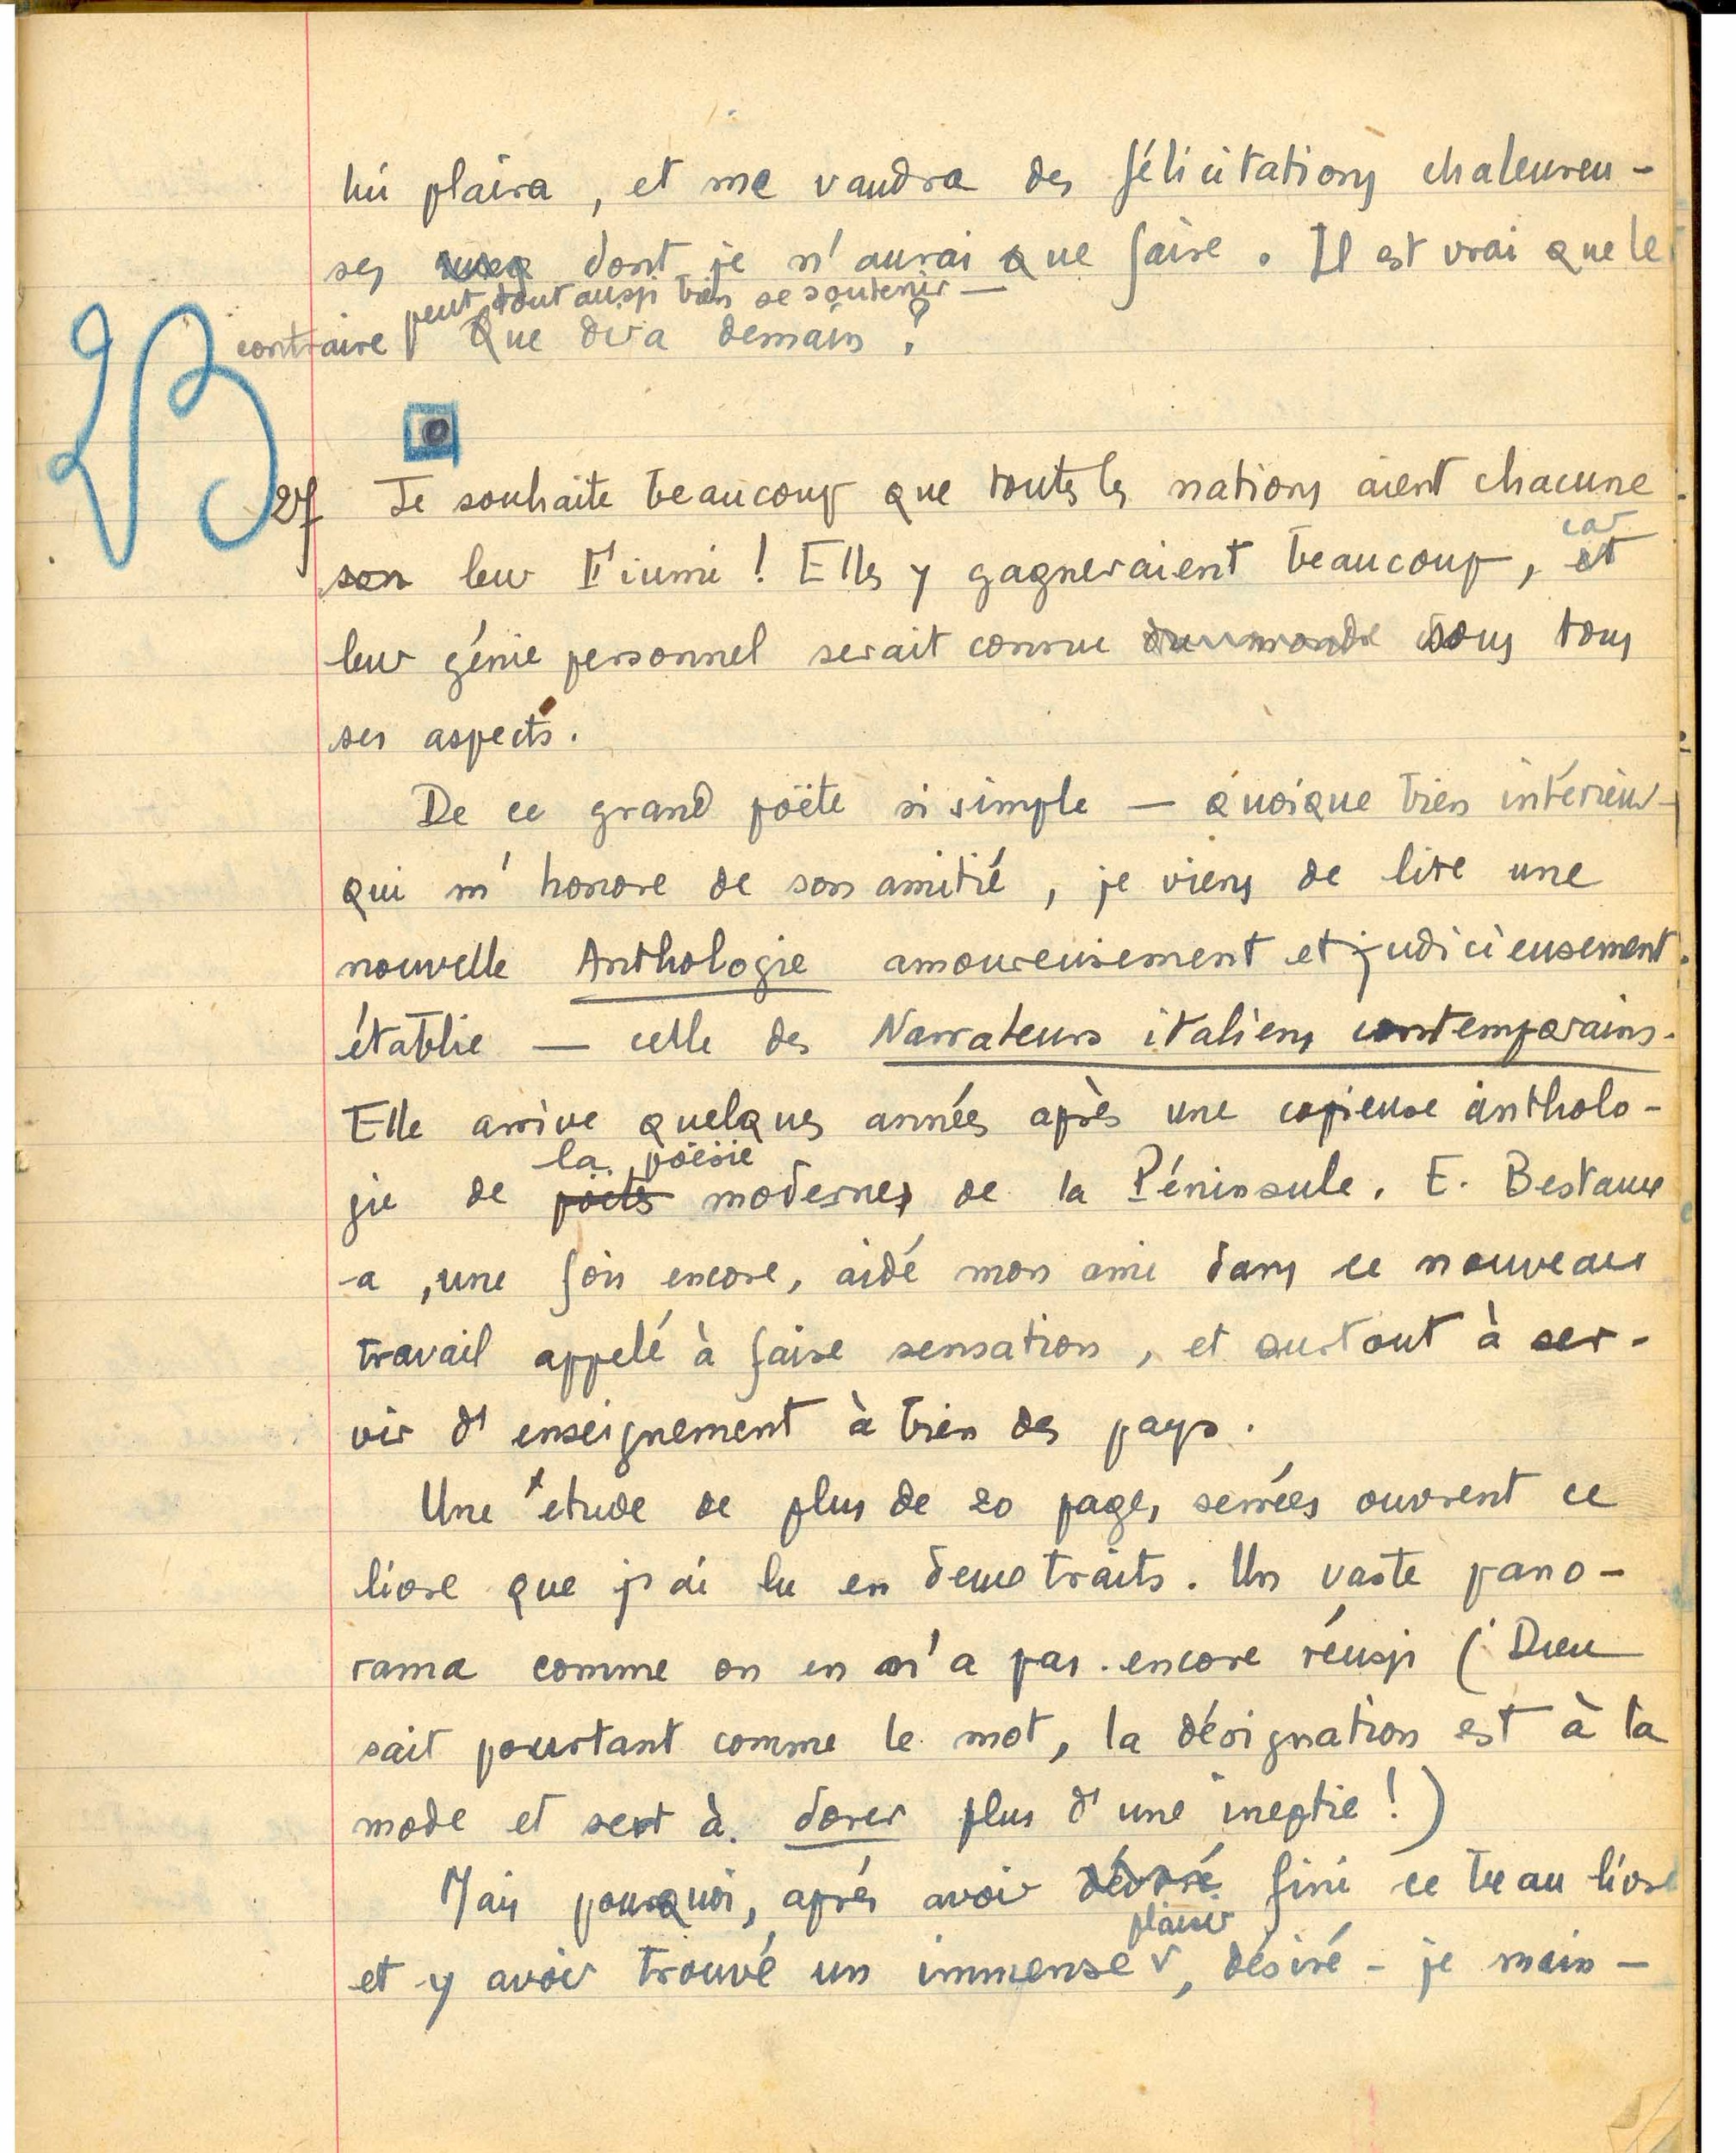 lui plaira, et me vaudra des félicitations chaleureu-
ses dont je n'aurai que faire. Il est vrai que le
contraire peut tout aussi bien se soutenir —
Que dira demain ?
27 Je souhaite beaucoup que toutes les nations aient chacune
son leur Fiumi ! Elles y gagneraient beaucoup, et car
leur génie personnel serait connu du monde sous tous
ses aspects.
De ce grand poëte si simple — quoique bien intérieur —
qui m'honore de son amitié, je viens de lire une
nouvelle Anthologie amoureusement et judicieusement
établie — celle des Narrateurs italiens contemporains.
Elle arrive quelques années après une copieuse antholo-
la poësie
gie de poëtes modernes de la Péninsule. E. Bestaux
a, une fois encore, aidé mon ami dans ce nouveau
travail appelé à faire sensation, et surtout à ser-
vir d'enseignement à bien des pays.
Une étude de plus de 20 pages serrées ouvrent ce
livre que j'ai lu en deux traits. Un vaste pano-
rama comme on en n'a pas encore réussi (Dieu
sait pourtant comme le mot, la désignation est à la
mode et sert à dorer plus d'une ineptie !)
Mais pourquoi, après avoir dévoré fini ce beau livre
plaisir
et y avoir trouvé un immense, désiré-je main-